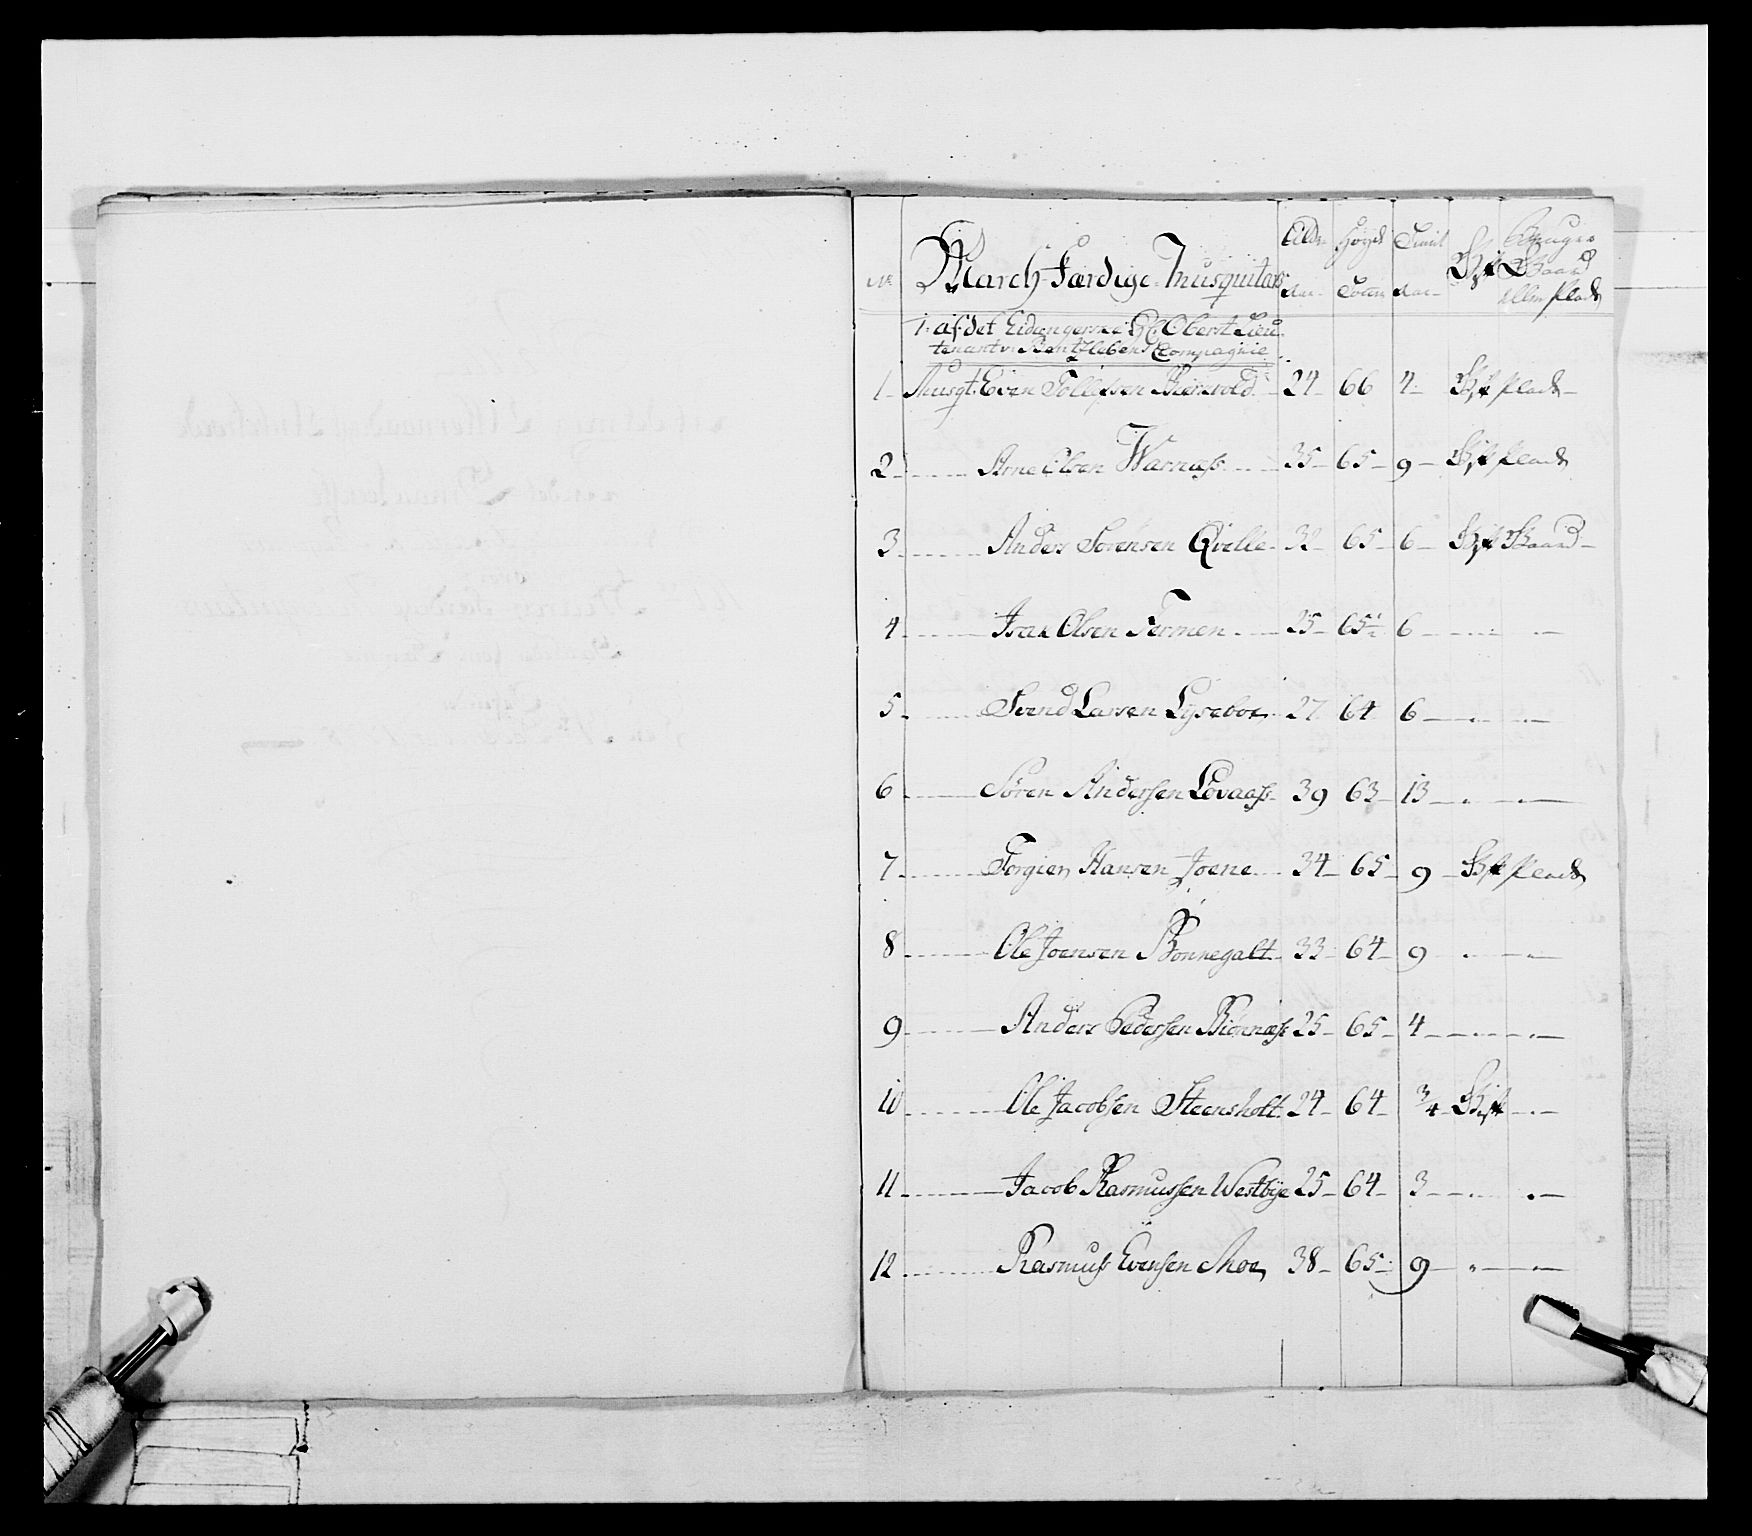 No March Færdige Musquitairs Alder Aar Høyde Tomm Tienst Aar Gift Bruger Gaard eller Plads
1: af det Eidangerske H: Oberst Lieu
tenant v: Bentzlebens Compagnie
1 Musqt: Even Tollefsen Biervold 24 66 4 Gift Plads
2 Arne Olsen Warnæss 35 65 9 Gift Plads
3 Anders Sørensen Qvelle 32 65 6 Gift Gaard
4 Isak Olsen Fermen 25 65½ 6 " "
5 Svend Larsen Lyseboe 27 64 6 " "
6 Søren Andersen Løvaass 39 63 13 " "
7 Torgier Hansen Joene 34 65 9 Gift Plads
8 Ole Joensen Rønnegalt 33 64 9 " "
9 Anders Pedersen Biørnnæss 25 65 4 " "
10 Ole Jacobsen Steensholt 24 64 3/4 Gift "
11 Jacob Rasmussen Westbye 25 64 3 " "
12 Rasmus Evensen Moe 38 65 9 " "